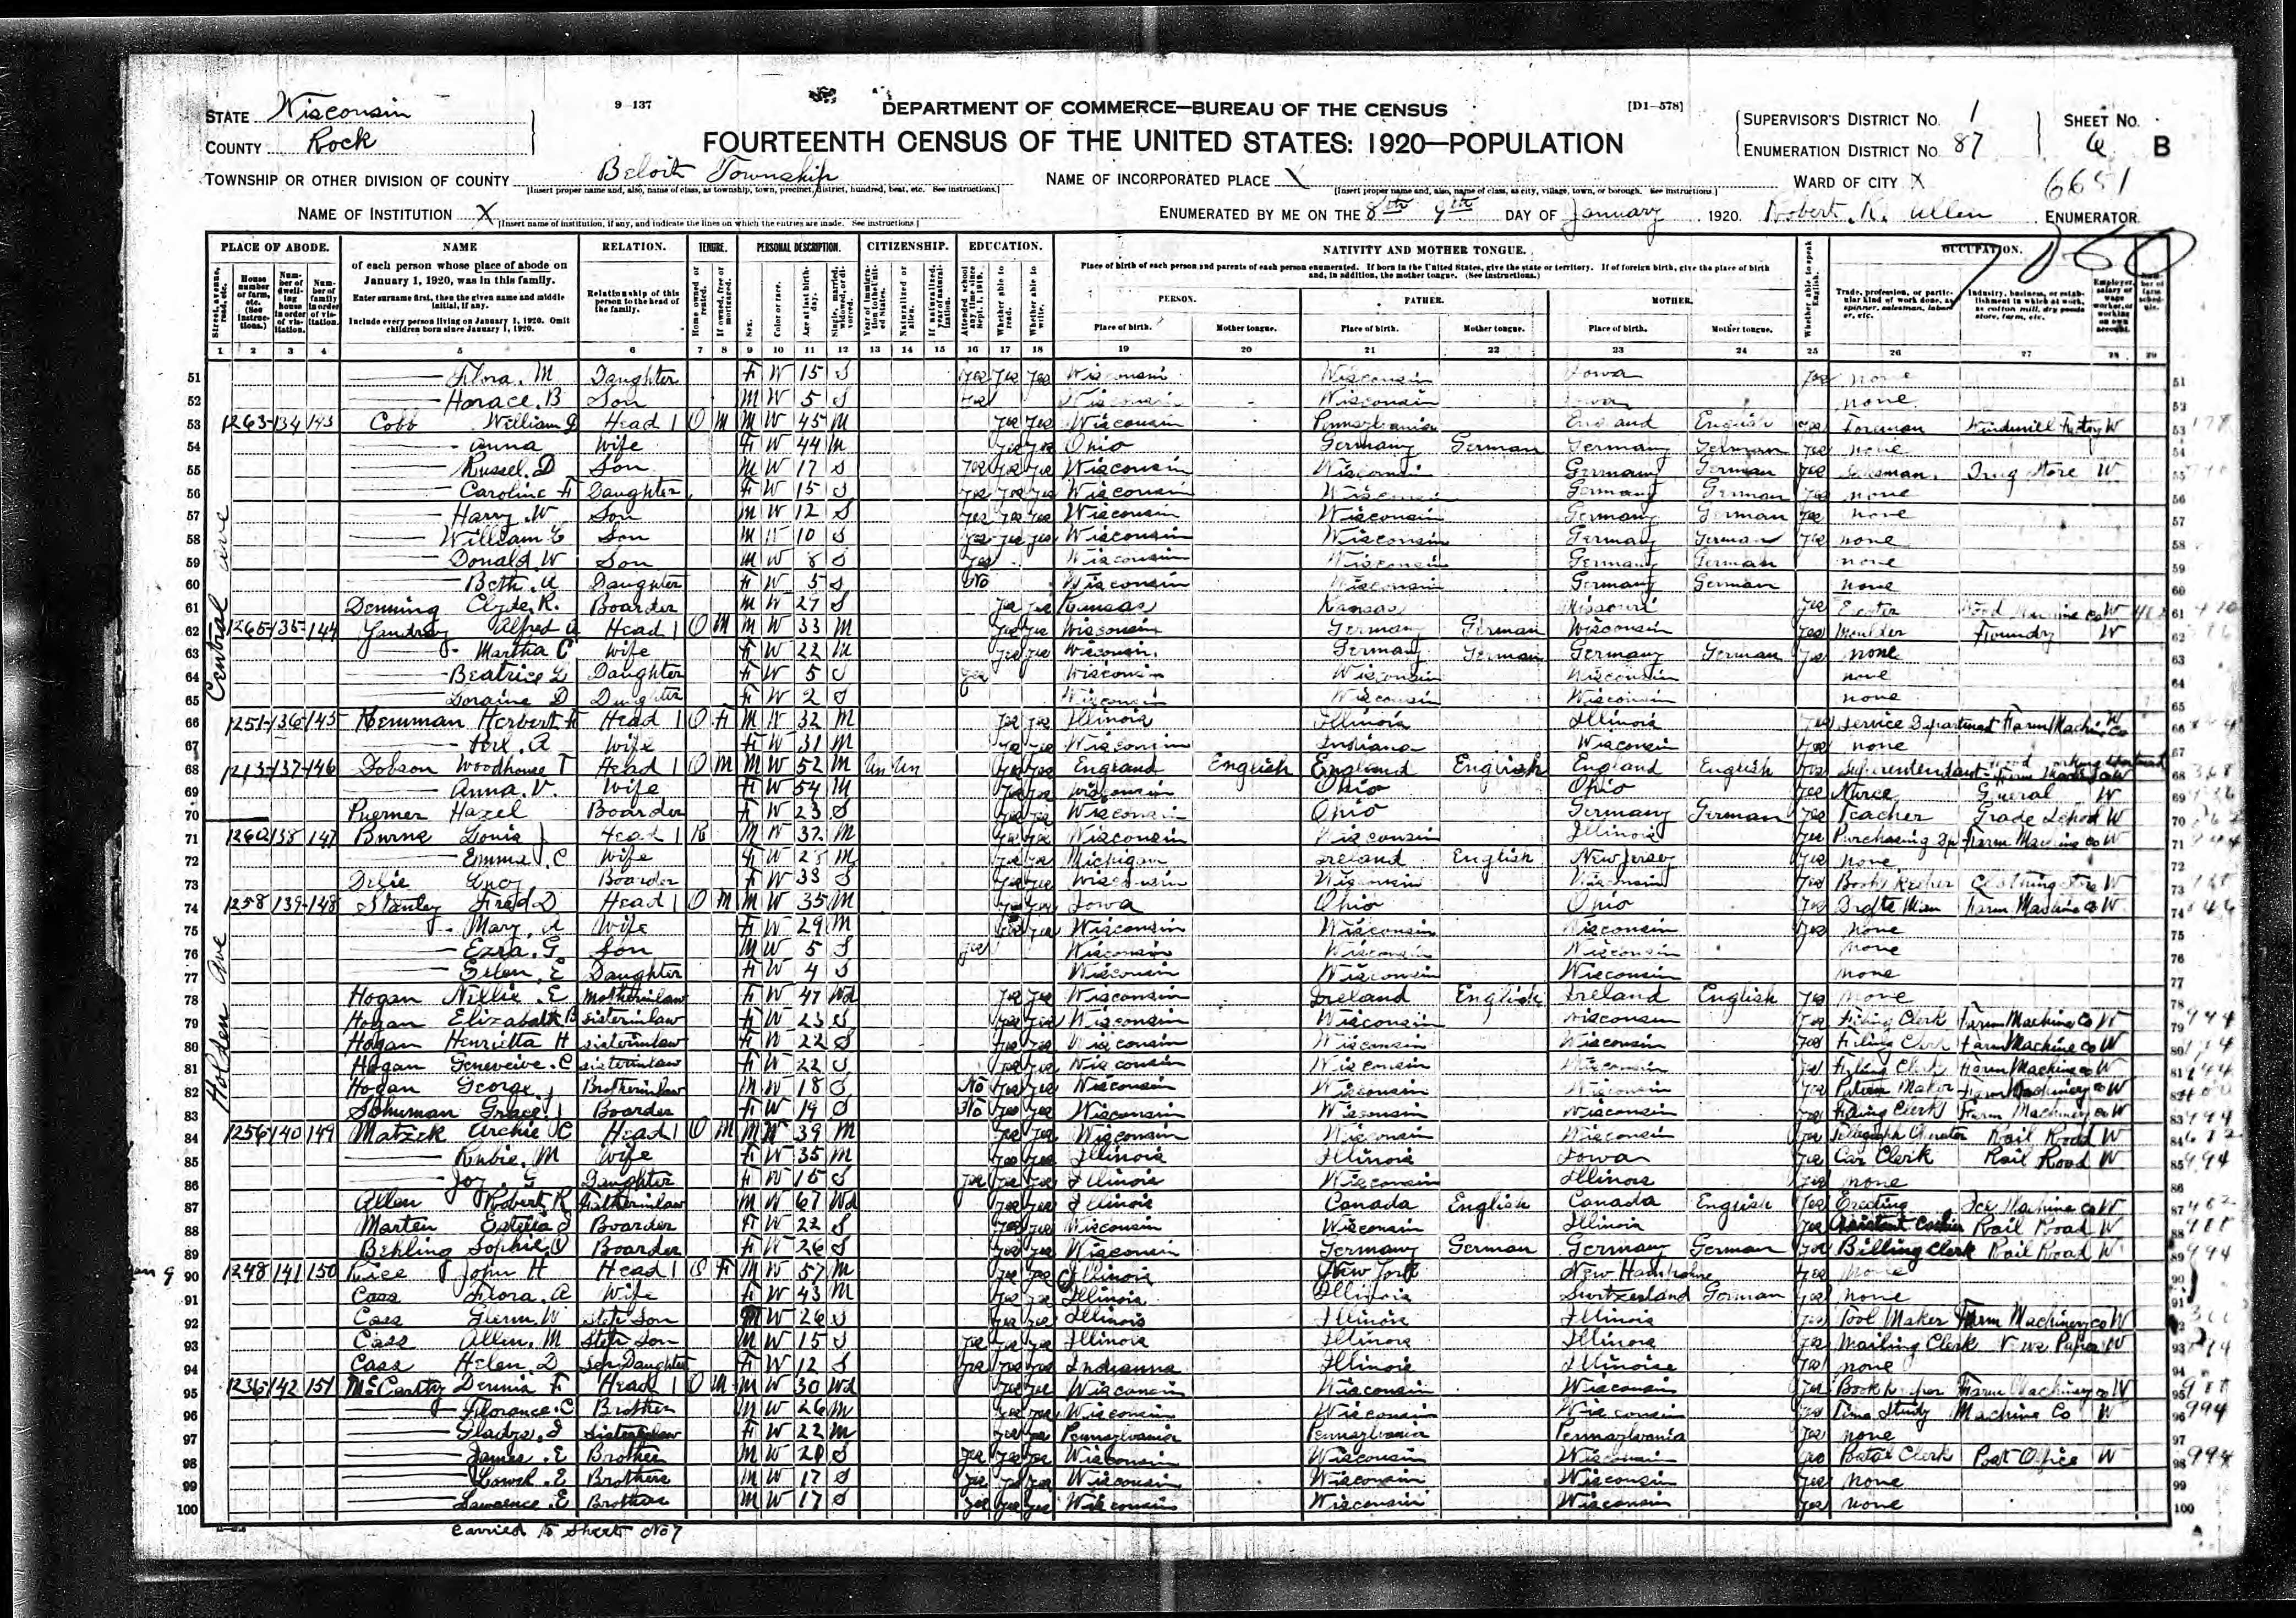 STATE Wisconsin
COUNTY Rock
9-137
DEPARTMENT OF COMMERCE—BUREAU OF THE CENSUS
[D1-578]
FOURTEENTH CENSUS OF THE UNITED STATES: 1920—POPULATION
SUPERVISOR'S DISTRICT No. 1
ENUMERATION DISTRICT No. 87
SHEET No. 6 B
TOWNSHIP OR OTHER DIVISION OF COUNTY Beloit Township
[Insert proper name and, also, name of class, as township, town, precinct, district, hundred, beat, etc. See instructions.]
NAME OF INCORPORATED PLACE X
[Insert proper name and, also, name of class, as city, village, town, or borough. See instructions.]
WARD OF CITY X
6651
NAME OF INSTITUTION X
[Insert name of institution, if any, and indicate the lines on which the entries are made. See instructions.]
ENUMERATED BY ME ON THE 8th 9th DAY OF January, 1920. Robert R. Allen ENUMERATOR.
PLACE OF ABODE. NAME RELATION. TENURE. PERSONAL DESCRIPTION. CITIZENSHIP. EDUCATION. NATIVITY AND MOTHER TONGUE. OCCUPATION.
of each person whose place of abode on January 1, 1920, was in this family.
Enter surname first, then the given name and middle initial, if any.
Include every person living on January 1, 1920. Omit children born since January 1, 1920.
Relationship of this person to the head of the family.
Place of birth of each person and parents of each person enumerated. If born in the United States, give the state or territory. If of foreign birth, give the place of birth and, in addition, the mother tongue. (See instructions.)
PERSON. FATHER. MOTHER.
Place of birth. Mother tongue. Place of birth. Mother tongue. Place of birth. Mother tongue.
1 2 3 4 5 6 7 8 9 10 11 12 13 14 15 16 17 18 19 20 21 22 23 24 25 26 27 28 29
Central Ave
51 Flora. M Daughter F W 15 S yes yes yes Wisconsin Wisconsin Iowa yes none
52 Horace. B Son M W 5 S yes Wisconsin Wisconsin Iowa none
53 1263 134 143 Cobb William G Head 1 O M M W 45 M yes yes Wisconsin Pennsylvania England English yes Foreman Windmill Factory W
54 Anna Wife F W 44 M yes yes Ohio Germany German Germany German yes none
55 Russel. D Son M W 17 S yes yes yes Wisconsin Wisconsin Germany German yes Salesman Drug Store W
56 Caroline F Daughter F W 15 S yes yes yes Wisconsin Wisconsin Germany German yes none
57 Harry. W Son M W 12 S yes yes yes Wisconsin Wisconsin Germany German yes none
58 William E Son M W 10 S yes yes yes Wisconsin Wisconsin Germany German yes none
59 Donald. W Son M W 8 S yes Wisconsin Wisconsin Germany German none
60 Beth. A Daughter F W 5 S No Wisconsin Wisconsin Germany German none
61 Denning Clyde. R. Boarder M W 27 S yes yes Kansas Kansas Missouri yes W
62 1265 135 144 Yandrey Alfred A Head 1 O M M W 33 M yes yes Wisconsin Germany German Wisconsin yes Moulder Foundry W
63 Martha C Wife F W 22 M yes yes Wisconsin Germany German Germany German yes none
64 Beatrice L Daughter F W 5 S yes Wisconsin Wisconsin Wisconsin none
65 Loraine D Daughter F W 2 S Wisconsin Wisconsin Wisconsin none
66 1251 136 145 Herbert F Head 1 O F M W 32 M yes yes Illinois Illinois Illinois yes Service Department Farm Machine Co W
67 Wife F W 31 M yes yes Wisconsin Indiana Wisconsin yes none
68 1213 137 146 Dobson Woodhouse T Head 1 O M M W 52 M Un Un yes yes England English England English England English yes Superintendant Farm Machine Co W
69 Anna. V. Wife F W 54 M yes yes Wisconsin Ohio Ohio yes Nurse General W
70 Puerner Hazel Boarder F W 23 S yes yes Wisconsin Ohio Germany German yes Teacher Grade School W
Holden Ave
71 1260 138 147 Burne Louis J Head 1 R M W 32 M yes yes Wisconsin Wisconsin Illinois yes Purchasing Dp Farm Machine Co W
72 Emma. C Wife F W 28 M yes yes Michigan Ireland English New Jersey yes none
73 Boarder F W 38 S yes yes Wisconsin Wisconsin Wisconsin yes Book Keeper Clothing Store W
74 1258 139 148 Stanley Fred D Head 1 O M M W 35 M yes yes Iowa Ohio Ohio yes Drafts Man Farm Machine Co W
75 Mary. A Wife F W 29 M yes yes Wisconsin Wisconsin Wisconsin yes none
76 Ezra. G Son M W 5 S yes Wisconsin Wisconsin Wisconsin none
77 Ellen. E Daughter F W 4 S Wisconsin Wisconsin Wisconsin none
78 Hogan Nellie. E Motherinlaw F W 47 Wd yes yes Wisconsin Ireland English Ireland English yes none
79 Hogan Elizabeth B sisterinlaw F W 23 S yes yes Wisconsin Wisconsin Wisconsin yes Filing Clerk Farm Machine Co W
80 Hogan Henrietta H sisterinlaw F W 22 S yes yes Wisconsin Wisconsin Wisconsin yes Filing Clerk Farm Machine Co W
81 Hogan Geneveive. C sisterinlaw F W 22 S yes yes Wisconsin Wisconsin Wisconsin yes Filing Clerk Farm Machine Co W
82 Hogan George. J Brotherinlaw M W 18 S No yes yes Wisconsin Wisconsin Wisconsin yes Patern Maker Farm Machinery Co W
83 Schuman Grace. J Boarder F W 19 S No yes yes Wisconsin Wisconsin Wisconsin yes Filing Clerk Farm Machinery Co W
84 1256 140 149 Matzek Archie C Head 1 O M M W 39 M yes yes Wisconsin Wisconsin Wisconsin yes Telegraph Operator Rail Road W
85 Rubie. M Wife F W 35 M yes yes Illinois Illinois Iowa yes Car Clerk Rail Road W
86 Joy. G Daughter F W 15 S yes yes yes Illinois Wisconsin Illinois yes none
87 Allen Robert R Fatherinlaw M W 67 Wd yes yes Illinois Canada English Canada English yes Erecting Ice Machine Co W
88 Marten Estella S Boarder F W 22 S yes yes Wisconsin Wisconsin Illinois yes Assistant Cashier Rail Road W
89 Behling Sophie O Boarder F W 26 S yes yes Wisconsin Germany German Germany German yes Billing Clerk Rail Road W
90 1248 141 150 Rice John H Head 1 O F M W 57 M yes yes Illinois New York New Hampshire yes none
91 Cass Flora. A Wife F W 43 M yes yes Illinois Illinois Switzerland German yes none
92 Cass Glenn. W Step Son M W 26 S yes yes Illinois Illinois Illinois yes Tool Maker Farm Machinery Co W
93 Cass Allen. M Step Son M W 15 S yes yes yes Illinois Illinois Illinois yes Mailing Clerk News Paper W
94 Cass Helen. D Step Daughter F W 12 S yes yes yes Indianna Illinois Illinoise yes none
95 1236 142 151 McCarthy Dennis F Head 1 O M M W 30 Wd yes yes Wisconsin Wisconsin Wisconsin yes Bookkeeper Farm Machinery Co W
96 Florance. C Brother M W 26 M yes yes Wisconsin Wisconsin Wisconsin yes Time Study Machine Co W
97 Gladys. I Sisterinlaw F W 22 M yes yes Pennsylvania Pennsylvania Pennsylvania yes none
98 James. E Brother M W 20 S yes yes yes Wisconsin Wisconsin Wisconsin yes Postal Clerk Post Office W
99 E Brothers M W 17 S yes yes yes Wisconsin Wisconsin Wisconsin yes none
100 Lawrence. E Brother M W 17 S yes yes yes Wisconsin Wisconsin Wisconsin yes none
Carried to Sheet No 7